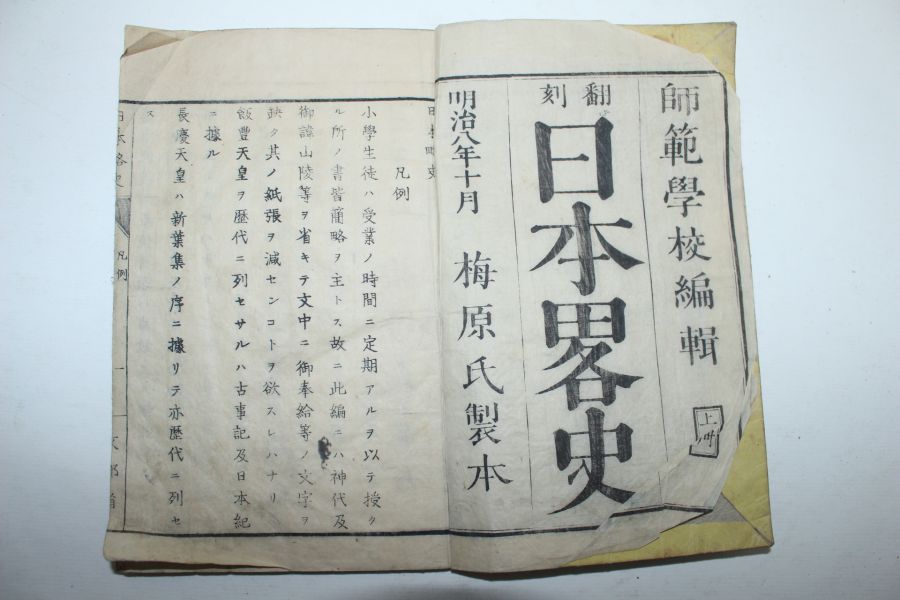 師範學校編輯
上册
翻刻
日本畧史
明治八年十月 梅原氏製本
日本略史
凡例
小學生徒ハ受業ノ時間ニ定期アルヲ以テ授ク
ル所ノ書皆簡略ヲ主トス故ニ此編ニハ神代及
御諱山陵等ヲ省キテ文中ニ御奉給等ノ文字ヲ
缺ク其ノ紙張ヲ減センコトヲ欲スレハナリ
飯豐天皇ヲ歴代ニ列セサルハ古事記及日本紀
ニ據ル
長慶天皇ハ新葉集ノ序ニ據リテ亦歴代ニ列セ
ス
日本略史 凡例 一 文部省